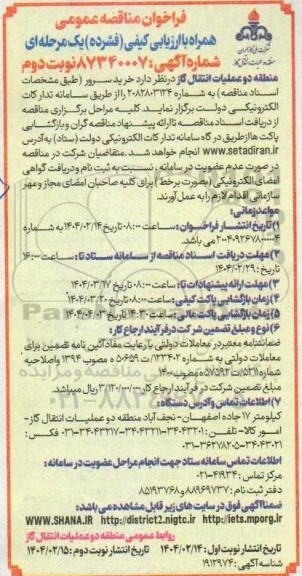 فراخوان مناقصه عمومی
همراه با ارزیابی کیفی (فشرده) یک مرحله ای
شماره آگهی: ۸۷۳۴۰۰۰۷ نوبت دوم
منطقه دو عملیات انتقال گاز در نظر دارد خرید سرور (طبق مشخصات
اسناد مناقصه) به شماره ۲۰۸۲۸۰۳۱۲۴ را از طریق سامانه تدارکات
الکترونیکی دولت برگزار نمایند. کلیه مراحل برگزاری مناقصه
از دریافت اسناد مناقصه تا ارائه پیشنهاد مناقصه گران و بازگشایی
پاکت ها از طریق درگاه سامانه تدارکات الکترونیکی دولت (ستاد) به آدرس
www.setadiran.ir انجام خواهد شد. متقاضیان شرکت در مناقصه
در صورت عدم عضویت در سامانه، نسبت به ثبت نام و دریافت گواهی
امضای الکترونیکی (بصورت برخط) برای کلیه صاحبان امضای مجاز و مهر
سازمانی اقدام لازم را به عمل آورند.
مواعد زمانی:
۱) تاریخ انتشار فراخوان: ساعت ۰۸:۰۰ تاریخ ۱۴۰۴/۰۲/۱۴ به شماره
۲۰۰۴۰۹۲۶۷۸۰۰۰۰۰۴ می باشد.
۲) مهلت دریافت اسناد مناقصه از سامانه ستاد تا: ساعت ۱۶:۰۰
تاریخ: ۱۴۰۴/۰۲/۲۹
۳) مهلت ارائه پیشنهادات تا: ساعت ۰۸:۰۰ تاریخ ۱۴۰۴/۰۳/۱۷
۴) زمان بازگشایی پاکت کیفی: ساعت ۰۸:۰۰ تاریخ ۱۴۰۴/۰۳/۲۰
۵) زمان بازگشایی پاکت مالی: ساعت ۱۴:۳۰ تاریخ ۱۴۰۴/۰۴/۰۳
۶) نوع و مبلغ تضمین شرکت در فرآیند ارجاع کار:
ضمانتنامه معتبر در معاملات دولتی با رعایت مفاد آئین نامه تضمین برای
معاملات دولتی به شماره ۱۲۳۴۰۲/ت ۵۰۶۵۹ ه مصوب ۱۳۹۴ و اصلاحیه
شماره ۵۳۱۱/ت ۵۷۵۹۲ ه مصوب ۱۴۰۰
مبلغ تضمین شرکت در فرآیند ارجاع کار ۳/۱۲۰/۰۰۰/۰۰۰ ریال میباشد.
۷) اطلاعات تماس و آدرس دستگاه:
کیلومتر ۱۷ جاده اصفهان - نجف آباد منطقه دو عملیات انتقال گاز -
امور کالا - تلفن: ۰۳۱-۳۴۰۴۳۲۰۱ - ۰۳۱-۳۴۰۴۳۲۱۱ - ۰۳۱-۳۴۰۴۳۲۱۷ فکس:
۰۳۱-۳۶۲۷۸۲۰۵ - ۰۳۱-۳۴۰۴۳۰۲۱
اطلاعات تماس سامانه ستاد جهت انجام مراحل عضویت در سامانه:
مرکز تماس: ۰۲۱-۴۱۹۳۴
دفتر ثبت نام: ۸۸۹۶۹۷۳۷ و ۸۵۱۹۳۷۶۸
ضمناً آگهی فوق در سایت های زیر قابل مشاهده می باشد:
WWW.SHANA.IR http://district2.nigtc.ir http://iets.mporg.ir
روابط عمومی منطقه دو عملیات انتقال گاز
تاریخ انتشار نوبت اول: ۱۴۰۴/۰۲/۱۴ تاریخ انتشار نوبت دوم: ۱۴۰۴/۰۲/۱۵
شناسه آگهی: ۱۹۱۲۹۷۴